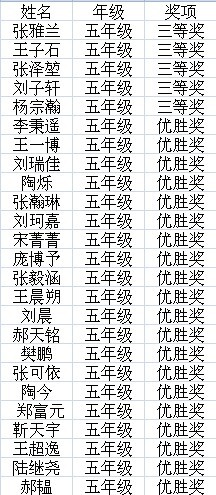 姓名 年级 奖项
张雅兰 五年级 三等奖
王子石 五年级 三等奖
张泽堃 五年级 三等奖
刘子轩 五年级 三等奖
杨宗瀚 五年级 三等奖
李秉遥 五年级 优胜奖
王一博 五年级 优胜奖
刘瑞佳 五年级 优胜奖
陶烁 五年级 优胜奖
张瀚琳 五年级 优胜奖
刘珂嘉 五年级 优胜奖
宋菁菁 五年级 优胜奖
庞博予 五年级 优胜奖
张毅涵 五年级 优胜奖
王晨朔 五年级 优胜奖
刘晨 五年级 优胜奖
郝天铭 五年级 优胜奖
樊鹏 五年级 优胜奖
张可依 五年级 优胜奖
陶今 五年级 优胜奖
郑富元 五年级 优胜奖
靳天宇 五年级 优胜奖
王超逸 五年级 优胜奖
陆继尧 五年级 优胜奖
郝韫 五年级 优胜奖